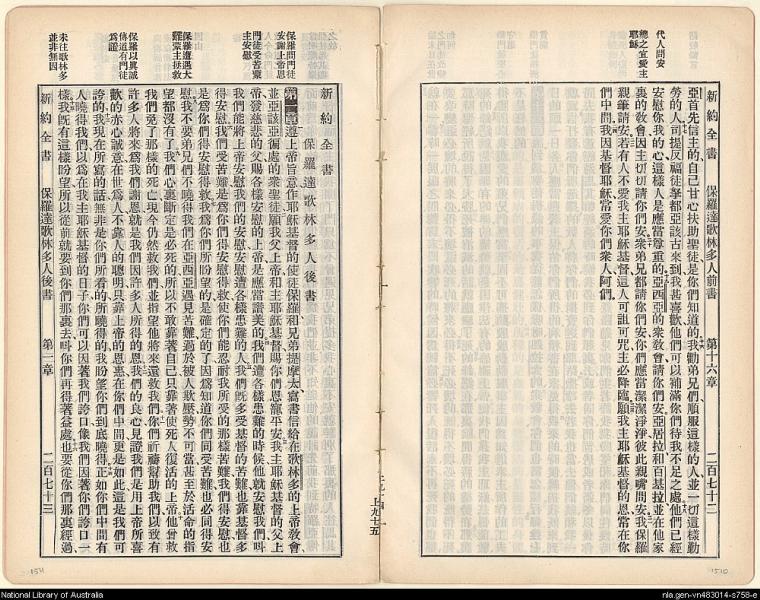 新約全書 保羅達歌林多人前書 第十六章 二百七十二
代人問安
總之宜愛主
耶穌
亞首先信主的自己甘心扶助聖徒是你們知道的我勸弟兄們順服這樣的人並一切這樣勤
勞的人司提反福徒拏都亞該古來到我甚喜歡他們可以補滿你們待我不足之處他們已經
安慰你我的心這樣人是應當尊重的亞西亞的衆教會請你們安亞居拉和百基拉並在他家
裏的教會因主切切請你們安衆弟兄都請你們安你們應當潔潔淨淨彼此親嘴問安我保羅
親筆請安若有人不愛我主耶穌基督這人可詛可咒主必降臨願我主耶穌基督的恩常在你
們中間我因基督耶穌常愛你們衆人阿們
新約全書
保羅達歌林多人後書
保羅問門徒
安謝上帝恩
門徒受苦蒙
主安慰
保羅遭遇大
難蒙主拯救
保羅以眞誠
傳道有門徒
爲證
未往歌林多
並非無因
第一章遵上帝旨意作耶穌基督的使徒保羅和兄弟提摩太寫書信給在歌林多的上帝教會
並亞該亞徧處的衆聖徒願我父上帝和主耶穌基督賜你們恩寵平安我主耶穌基督的父上
帝發慈悲的父賜各樣安慰的上帝是應當讚美的我們遭各樣患難的時候他就安慰我們呌
我們能將上帝安慰我們的安慰安慰遭各樣患難的人我們旣多受基督的苦難也靠基督多
得安慰我們受苦難是爲你們得安慰得救使你們能忍耐我所受的那樣苦難我們得安慰也
是爲你們得安慰得救我爲你們所盼望的是確定的了因爲知道你們同受苦難也必同得安
慰我不要弟兄們不曉得我們在亞西亞遇見苦難過於被人欺壓勢不可當甚至於活命的指
望都沒有了我們心裏斷定是必死的所以不敢靠著自己只靠著使死人復活的上帝他曾救
我們免了那樣的死亡現今仍然救我們並指望他將來還救我們你們祈禱幫助我們以致有
許多人將來爲我們謝恩就是我們因許多人所得的恩我們的良心見證我們是用上帝所喜
歡的赤心誠意在世爲人不靠人的聰明只靠上帝的恩惠在你們中間更是如此這是我們可
誇的我現在所寫的話無非是你們所看的所曉得的我盼望你們到底曉得正如你們中間有
人曉得我們以爲在我主耶穌基督的日子你們可以因著我們誇口像我們因著你們誇口一
樣我旣有這樣盼望所以從前就要到你們那裏去呌你們再得著益處也要從你們那裏經過
新約全書 保羅達歌林多人後書 第一章 二百七十三
上九七五
1511
1510
National Library of Australia
nla.gen-vn483014-s758-e